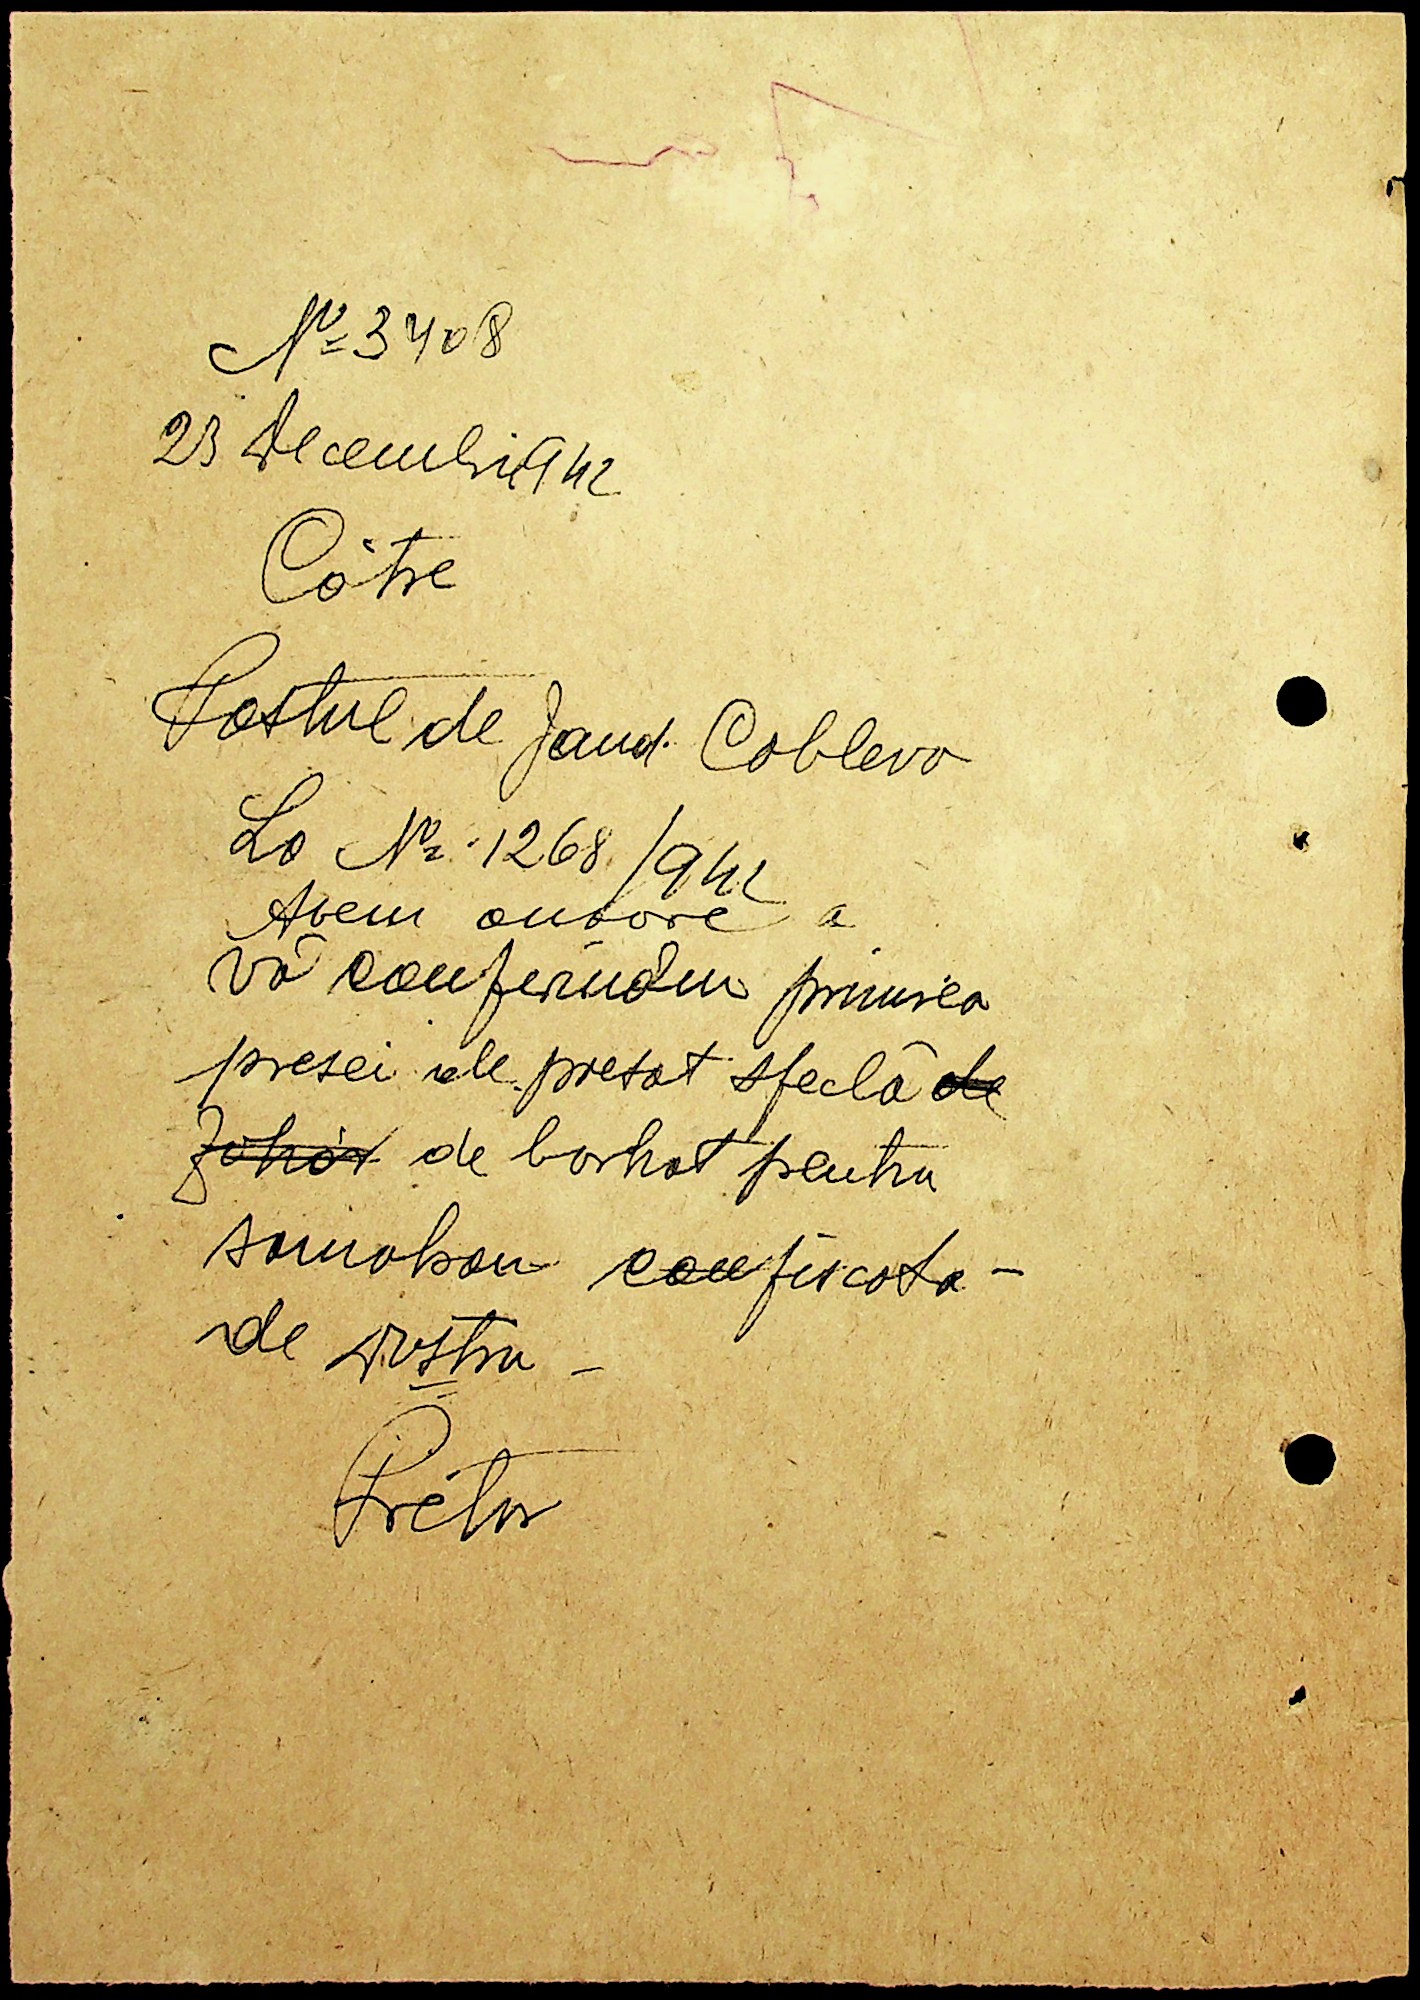 No 3408
23 Decembrie 942
Către
Postul de Jand. Coblevo
La No. 1268/942
Avem onoare a
vă confirmăm primirea
presei de presat sfeclă de
zahăr de borhot pentru
samahon confiscata -
de Dvstra -
Pretor